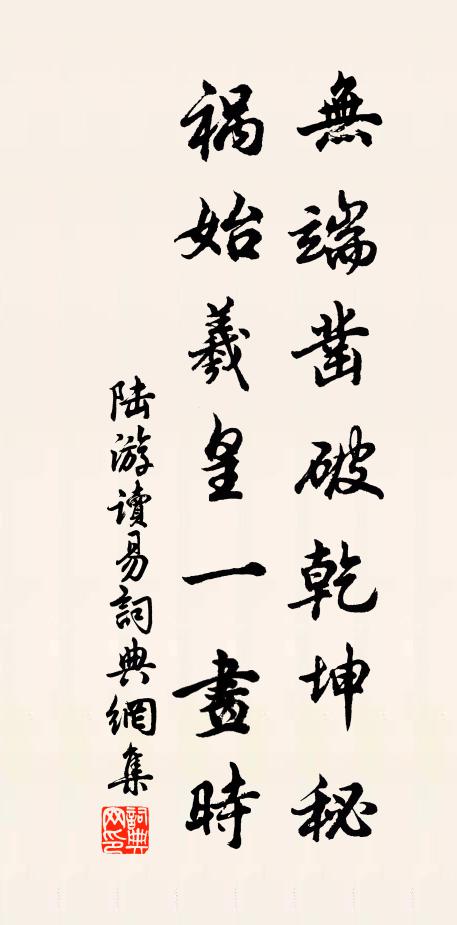 無端鑿破乾坤秘
禍始羲皇一畫時
陆游讀易詞典網集
詞典网印